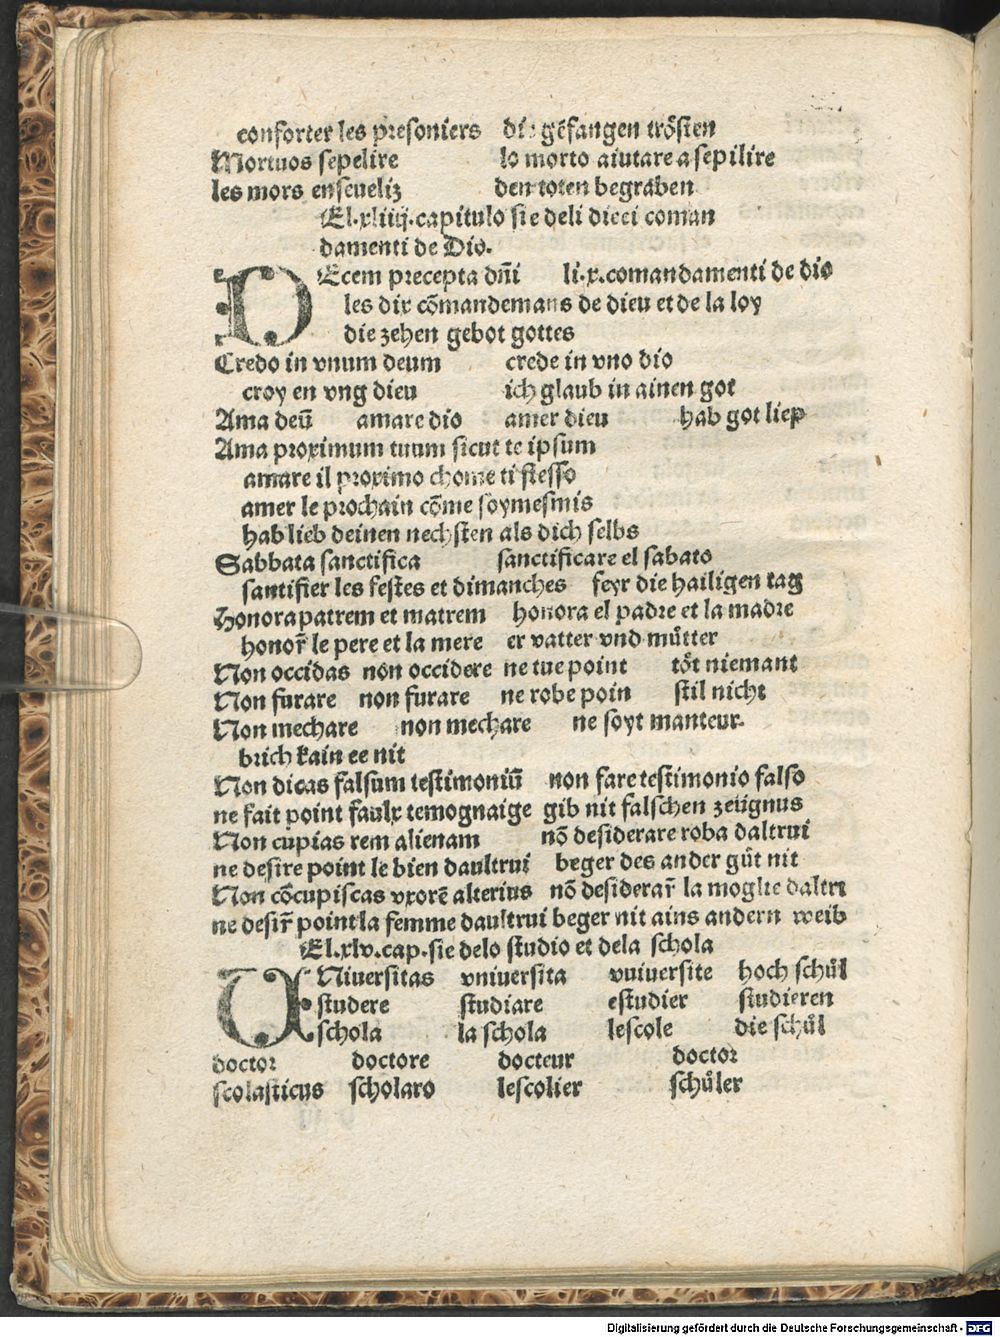 conforter les presoniers die gefangen trösten
Mortuos sepelire lo morto aiutare a sepilire
les mors enseueliz den toten begraben
El.xliiij.capitulo si e deli dieci coman
damenti de Dio.
DEcem precepta dñi li.x.comandamenti de dio
les dix cõmandemans de dieu et de la loy
die zehen gebot gottes
Credo in vnum deum crede in vno dio
croy en vng dieu ich glaub in ainen got
Ama deũ amare dio amer dieu hab got liep
Ama proximum tuum sicut te ipsum
amare il proximo chome ti stesso
amer le prochain cõme soymesmis
hab lieb deinen nechsten als dich selbs
Sabbata sanctifica sanctificare el sabato
santifier les festes et dimanches feyr die hailigen tag
Honora patrem et matrem honora el padre et la madre
honor̃ le pere et la mere er vatter vnd můtter
Non occidas non occidere ne tue point töt niemant
Non furare non furare ne robe poin stil nicht
Non mechare non mechare ne soyt manteur.
brich kain ee nit
Non dicas falsum testimoniũ non fare testimonio falso
ne fait point faulx temognaige gib nit falschen zeügnus
Non cupias rem alienam nõ desiderare roba daltrui
ne desire point le bien daultrui beger des ander gůt nit
Non cõcupiscas vxorẽ alterius nõ desiderar̃ la moglie daltri
ne desir̃ point la femme daultrui beger nit ains andern weib
El.xlv.cap.si e delo studio et dela schola
UNiuersitas vniuersita vuiuersite hoch schůl
studere studiare estudier studieren
schola la schola lescole die schůl
doctor doctore docteur doctor
scolasticus scholaro lescolier schůler
Digitalisierung gefördert durch die Deutsche Forschungsgemeinschaft - DFG